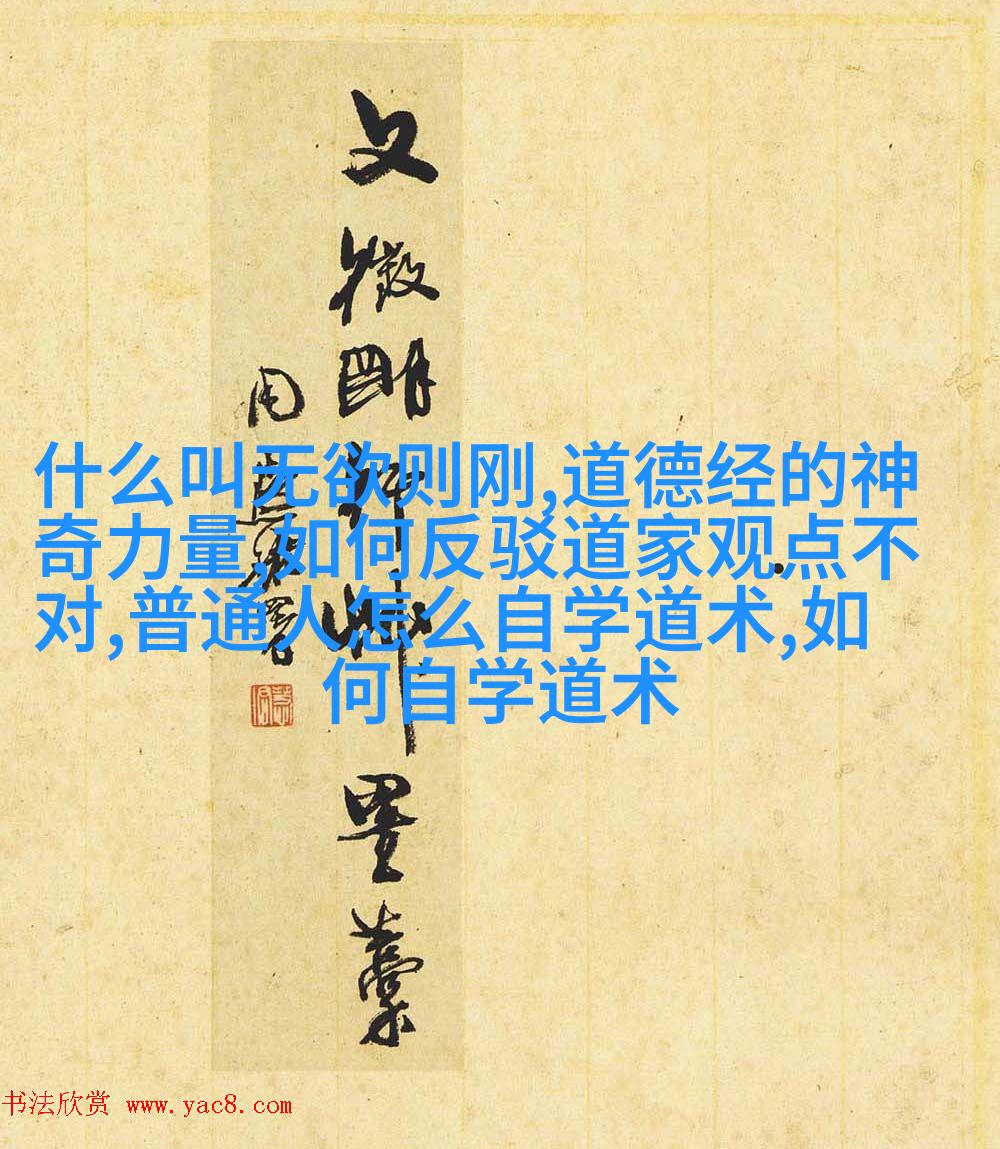 文徵明
墨藁
周慧珺署
什么叫无欲则刚,道德经的神
奇力量,如何反驳道家观点不
对,普通人怎么自学道术,如
何自学道术
书法欣赏 www.yac8.com